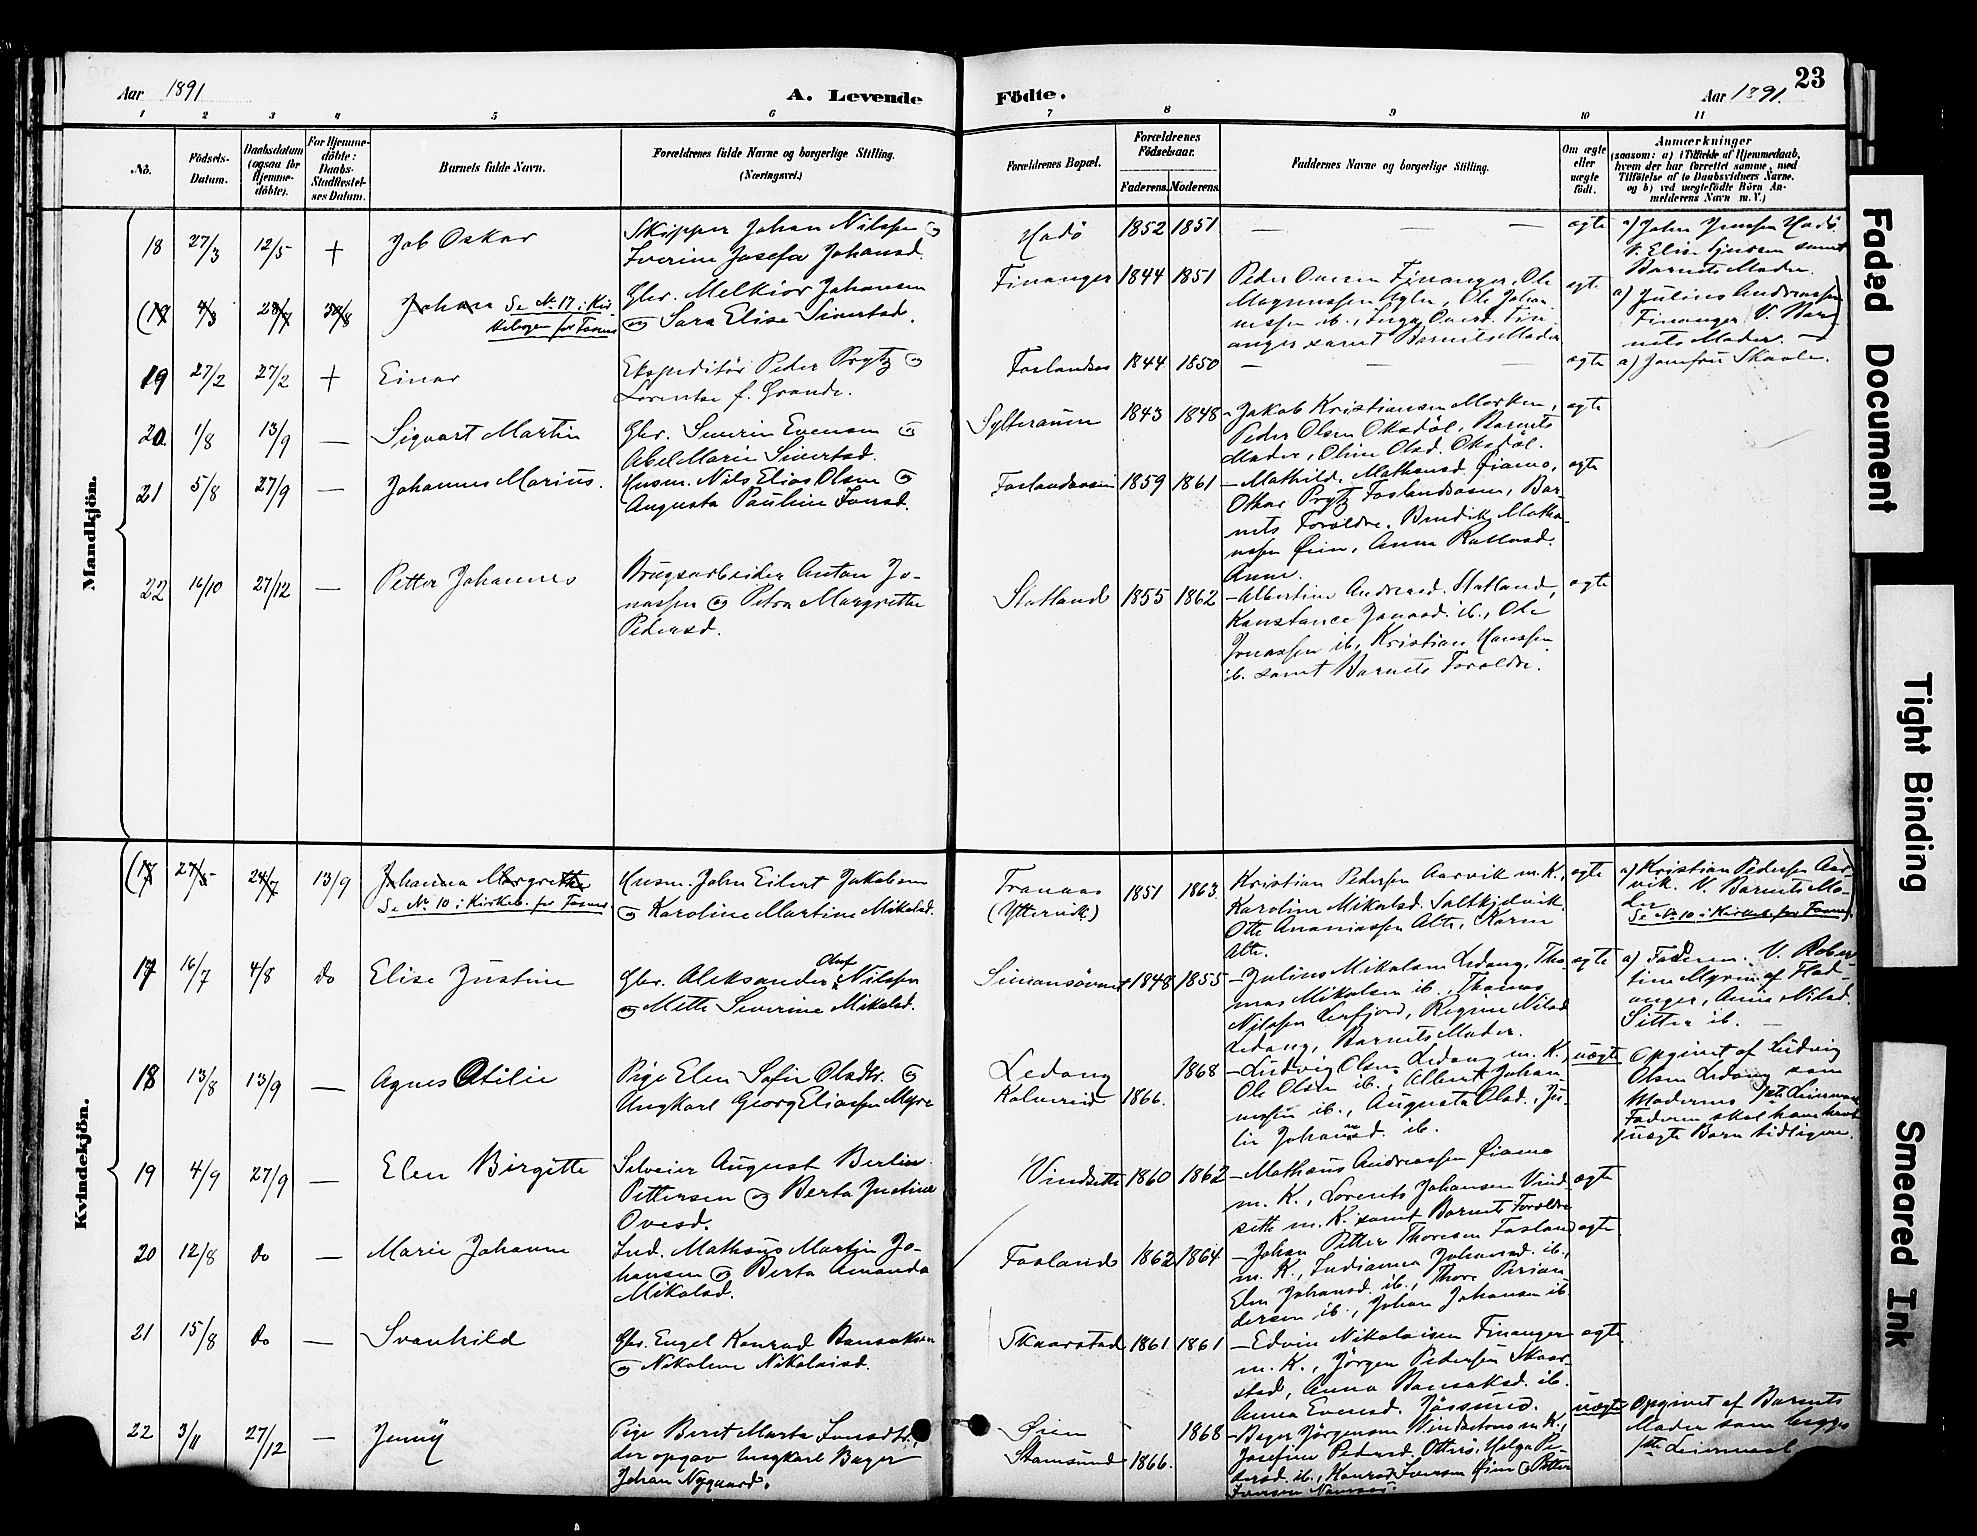 Aar 1891
A. Levende
Födte.
Aar 1891.
23
1 2 3 4 5 6 7 8 9 10 11
No.
Födsels-
Datum.
Daabsdatum
(ogsaa for
Hjemme-
döbte).
For Hjemme-
döbte:
Daabs-
Stadfæstel-
ses Datum.
Barnets fulde Navn.
Forældrenes fulde Navne og borgerlige Stilling.
(Næringsvei.)
Forældrenes Bopæl.
Forældrenes
Födselsaar.
Faderens. Moderens.
Faddernes Navne og borgerlige Stilling.
Om ægte
eller
uægte
födt.
Anmærkninger
(saasom: a) i Tilfælde af Hjemmedaab,
hvem der har forrettet samme, med
Tilföielse af to Daabsvidners Navne,
og b) ved uægtefödte Börn An-
melderens Navn m. V.)
Mandkjön.
18 27/3 12/5 + Job Oskar
Skipper Johan Nilssen og
Iverine Josefa Johansd.
Hodö 1852 1851 — — — ægte
a) John Jenssen Hodö
V. Elise samt
Barnets Moder.
(17 4/3 Johan Se No. 17 i Kir-
kebogen for Fosnes
Gbr. Melkior Johansen
og Sara Elise Sivertsd.
Finanger 1844 1851
Peder Ovesen Finanger, Ole
Magnussen Ole Johan-
nessen ib., Inga Ovesd. Fin-
anger samt Barnets Moder
ægte
a) Julius Andreassen
Finanger V. Bar-
nets Moder. —)
19 27/2 27/2 + Einar
Ekspeditör Peder Prytz og
Lorentse f. Grande.
Foslandsos 1844 1850 — — — ægte
a) Jomfru Skaale.
20. 1/8 13/9 — Sigvart Martin
Gbr. Severin Evensen og
Abel Marie Sivertsd.
Sylteraunen 1843 1848
- Jakob Kristiansen Morken,
Peder Olsen Oksdöl, Barnets
Moder, Oline Olsd. Oksdöl.
ægte
21 5/8 27/9 — Johannes Marius.
Husm. Nils Elias Olsen og
Augusta Pauline Iversd.
Foslandsosen 1859 1861
- Mathilde Mathensd. Öiamo,
Othar Prytz Foslandsosen, Bar-
nets Forældre. Bendik Matha-
nssen Öien, Anna
Anne.
ægte
22 16/10 27/12 — Petter Johannes
Brugsarbeider Anton Jo-
nassen og Petra Margrethe
Pedersd.
Statland 1855 1862
- Albertine Andreasd. Statland,
Konstance Jonasd. ib., Ole
Jonassen ib., Kristian Hanssen
ib. samt Barnets Forældre.
ægte
Kvindekjön.
(17 24/7 13/9 Johanna Margrethe
Se No. 10 i Kirkeb. for Fosnes.
Husm. John Eilert Jakobsen
og Karoline Martine Mikalsd.
Tranaas
(Yttervik)
1851 1863
Kristian Pedersen Aarvik m. K.,
Karoline Mikalsd. Saltkjelvik,
Otte Ananiassen Alte, Karen
Alte.
ægte
a) Kristian Pedersen Aar-
vik. V. Barnets Mo-
der
Se No. 10 i Kirkeb. for Fosnes)
17 16/7 4/8 do Elise Justine
Gbr. Aleksander Oluf Nilssen
og Mette Severine Mikalsd.
Simansövaret 1848 1855
- Julius Mikalsen Ledang, Tho-
mas Mikalsen ib., Thomas
Nilssen Lerfjord, Regine Nilsd
Ledang, Barnets Moder.
ægte
a) Faderen. V. Rober-
tine Myrin af Flad-
anger, Anna Nilsd.
Sitter ib. —
18 13/8 13/9 — Agnes Otilie
Pige Elen Sofie Olsdtr. og
Ungkarl Georg Eliassen Myre
Ledang
Kolvereid
1866. 1868
- Ludvig Olsen Ledang m. K.,
Ole Olsen ib., Albert Johan-
nessen ib., Augusta Olsd., Ju-
lie Johannesd. ib.
uægte
Opgivet af Ludvig
Olsen Ledang som
Moderens 1ste Leiermaal
Faderen skal have havt
uægte Barn tidligere.
19 4/9 27/9 — Elen Birgitte
Selveier August Berlin
Pettersen og Berta Justine
Ovesd.
Vindsette 1860 1862
- Mathæus Andreassen Öiamo
m. K., Lorents Johansen Vind-
sette m. K. samt Barnets Forældre
ægte
20 12/8 do — Marie Johanne
Ind. Mathæus Martin Jo-
hansen og Berta Amanda
Mikalsd.
Fosland 1862 1864
- Johan Petter Thoresen Fosland
m. K., Indianna Johansd. ib.,
Elen Johansd. ib., Thore
dersen ib., Johan Johansen ib.
ægte
21 15/8 do — Svanhild
Gbr. Engel Konrad Bansaksen
og Nikoline Nikolaisd.
Skaarstad 1861 1861
- Edvin Nikolaisen Finanger
m. K., Jörgen Pedersen Skaar-
stad, Anna Bansaksd. ib.
Anna Evensd. Jössund.
ægte
22 3/11 27/12 — Jenny
Pige Berit Marta Iversdtr.,
der opgav Ungkarl Bager
Johan Nygaard.
Öien
Stamsund
1866. 1868
- Bager Jörgensen m. K.,
Josefine Pedersd. Helga Pe-
dersd. ib., Konrad Iversen Öien og Petter
Iversen Namsos.
uægte
Opgivet af Barnets
Moder som begges
1ste Leiermaal
Faded Document
Tight Binding
Smeared Ink